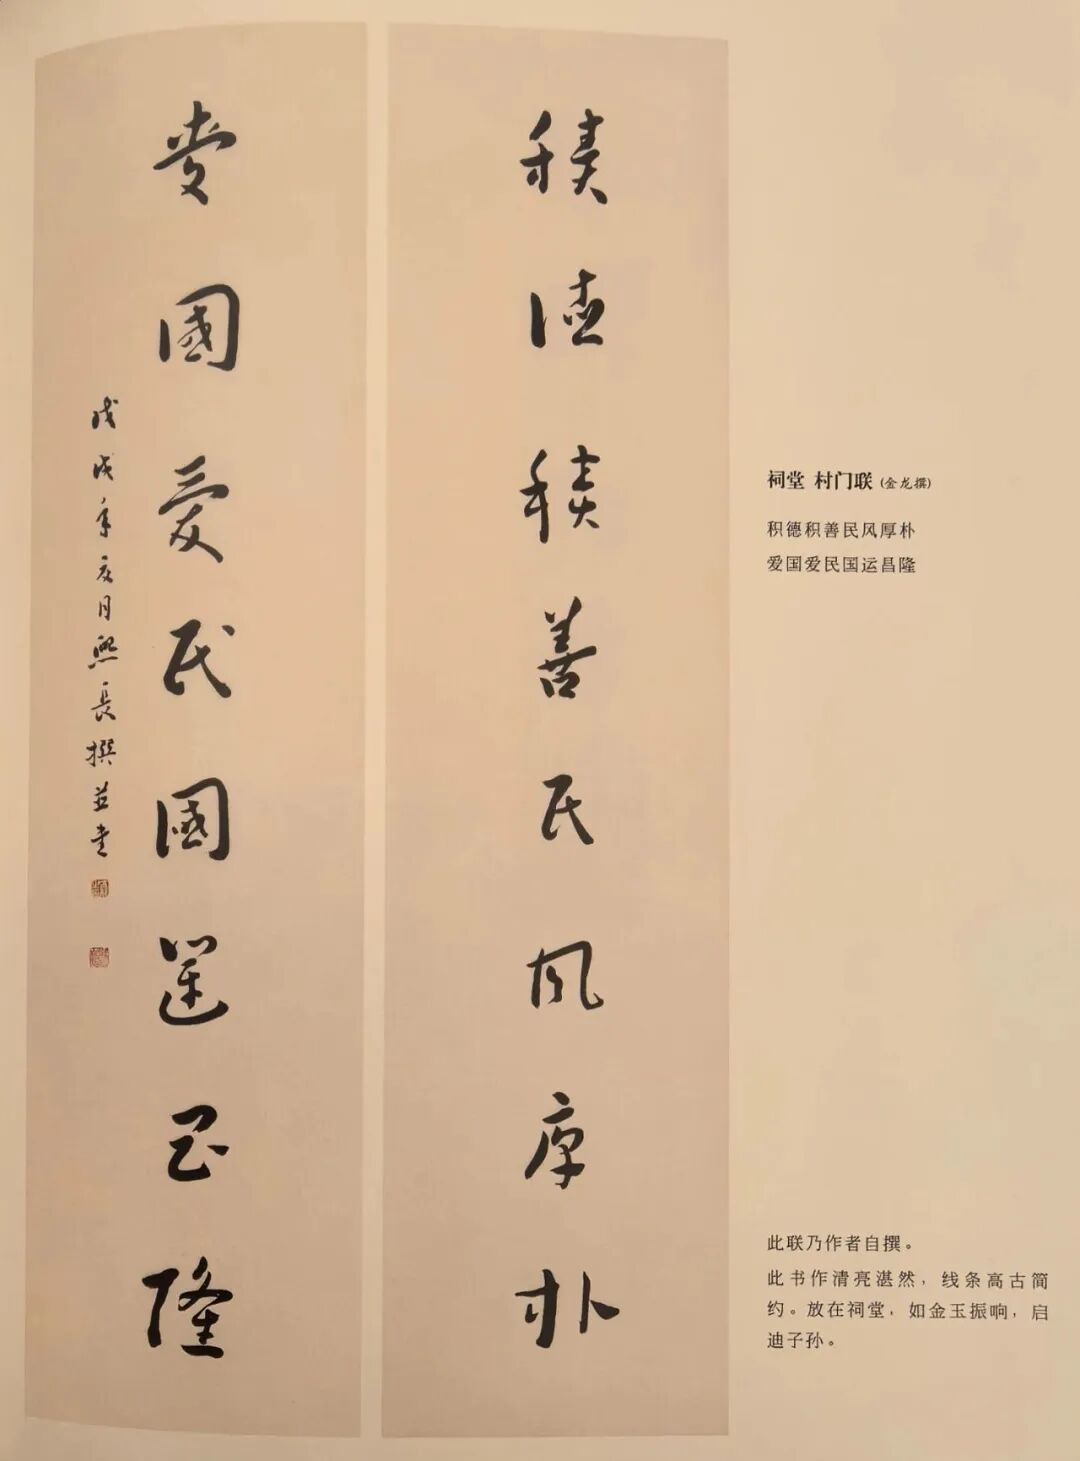 積德積善民風厚朴
愛國愛民國運昌隆
戊戌年庚月熙長撰並書
祠堂 村门联 (金龙撰)
积德积善民风厚朴
爱国爱民国运昌隆
此联乃作者自撰。
此书作清亮湛然，线条高古简
约。放在祠堂，如金玉振响，启
迪子孙。